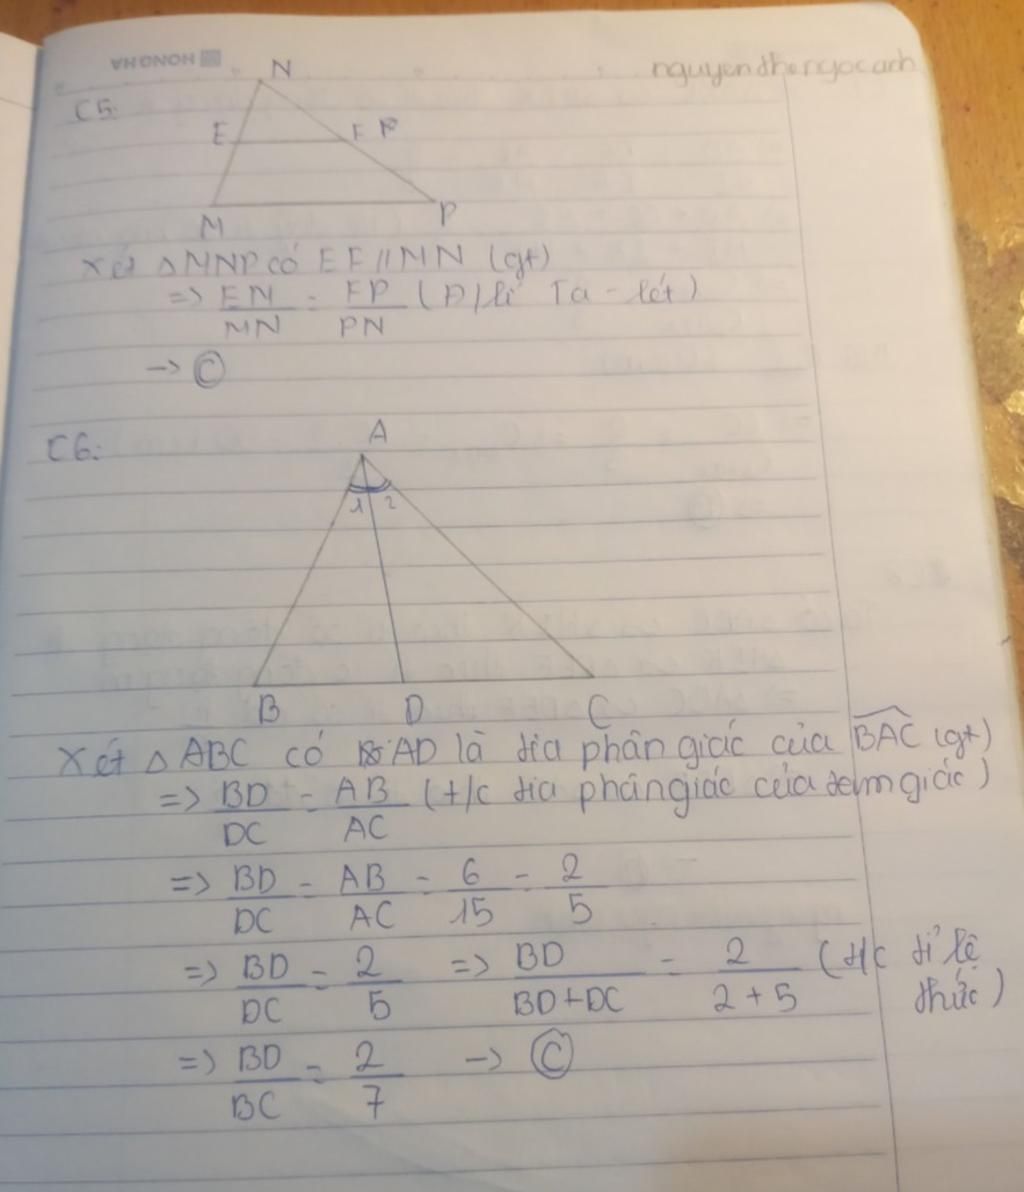 HONGHA
nguyenthengocanh
C5:
N
E F P
M P
Xét △MNP có EF//MN (gt)
=> EN/MN = FP/PN (Đ/lí Ta-lét)
-> Ⓒ
C6:
A
1 2
B D C
Xét △ABC có AD là tia phân giác của BAC (gt)
=> BD/DC = AB/AC (t/c tia phân giác của tam giác)
=> BD/DC = AB/AC = 6/15 = 2/5
=> BD/DC = 2/5 => BD/BD+DC = 2/2+5 (t/c tỉ lệ
thức)
=> BD/BC = 2/7 -> Ⓒ